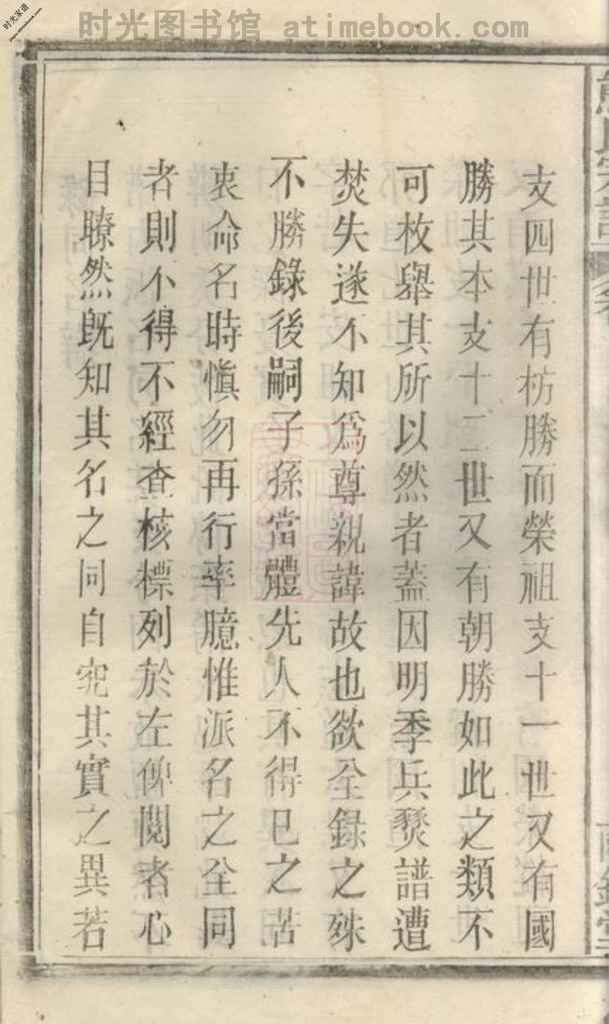 时光图书馆 atimebook.com
时光家谱
www.atimebook.com
支四世有枋勝而榮祖支十一世又有國
勝其本支十二世又有朝勝如此之類不
可枚舉其所以然者蓋因明季兵燹譜遭
焚失遂不知為尊親諱故也欲全錄之殊
不勝錄後嗣子孫當體先人不得已之苦
衷命名時慎勿再行率臆惟派名之全同
者則不得不經查核標列於左俾閱者心
目瞭然既知其名之同自究其實之異若